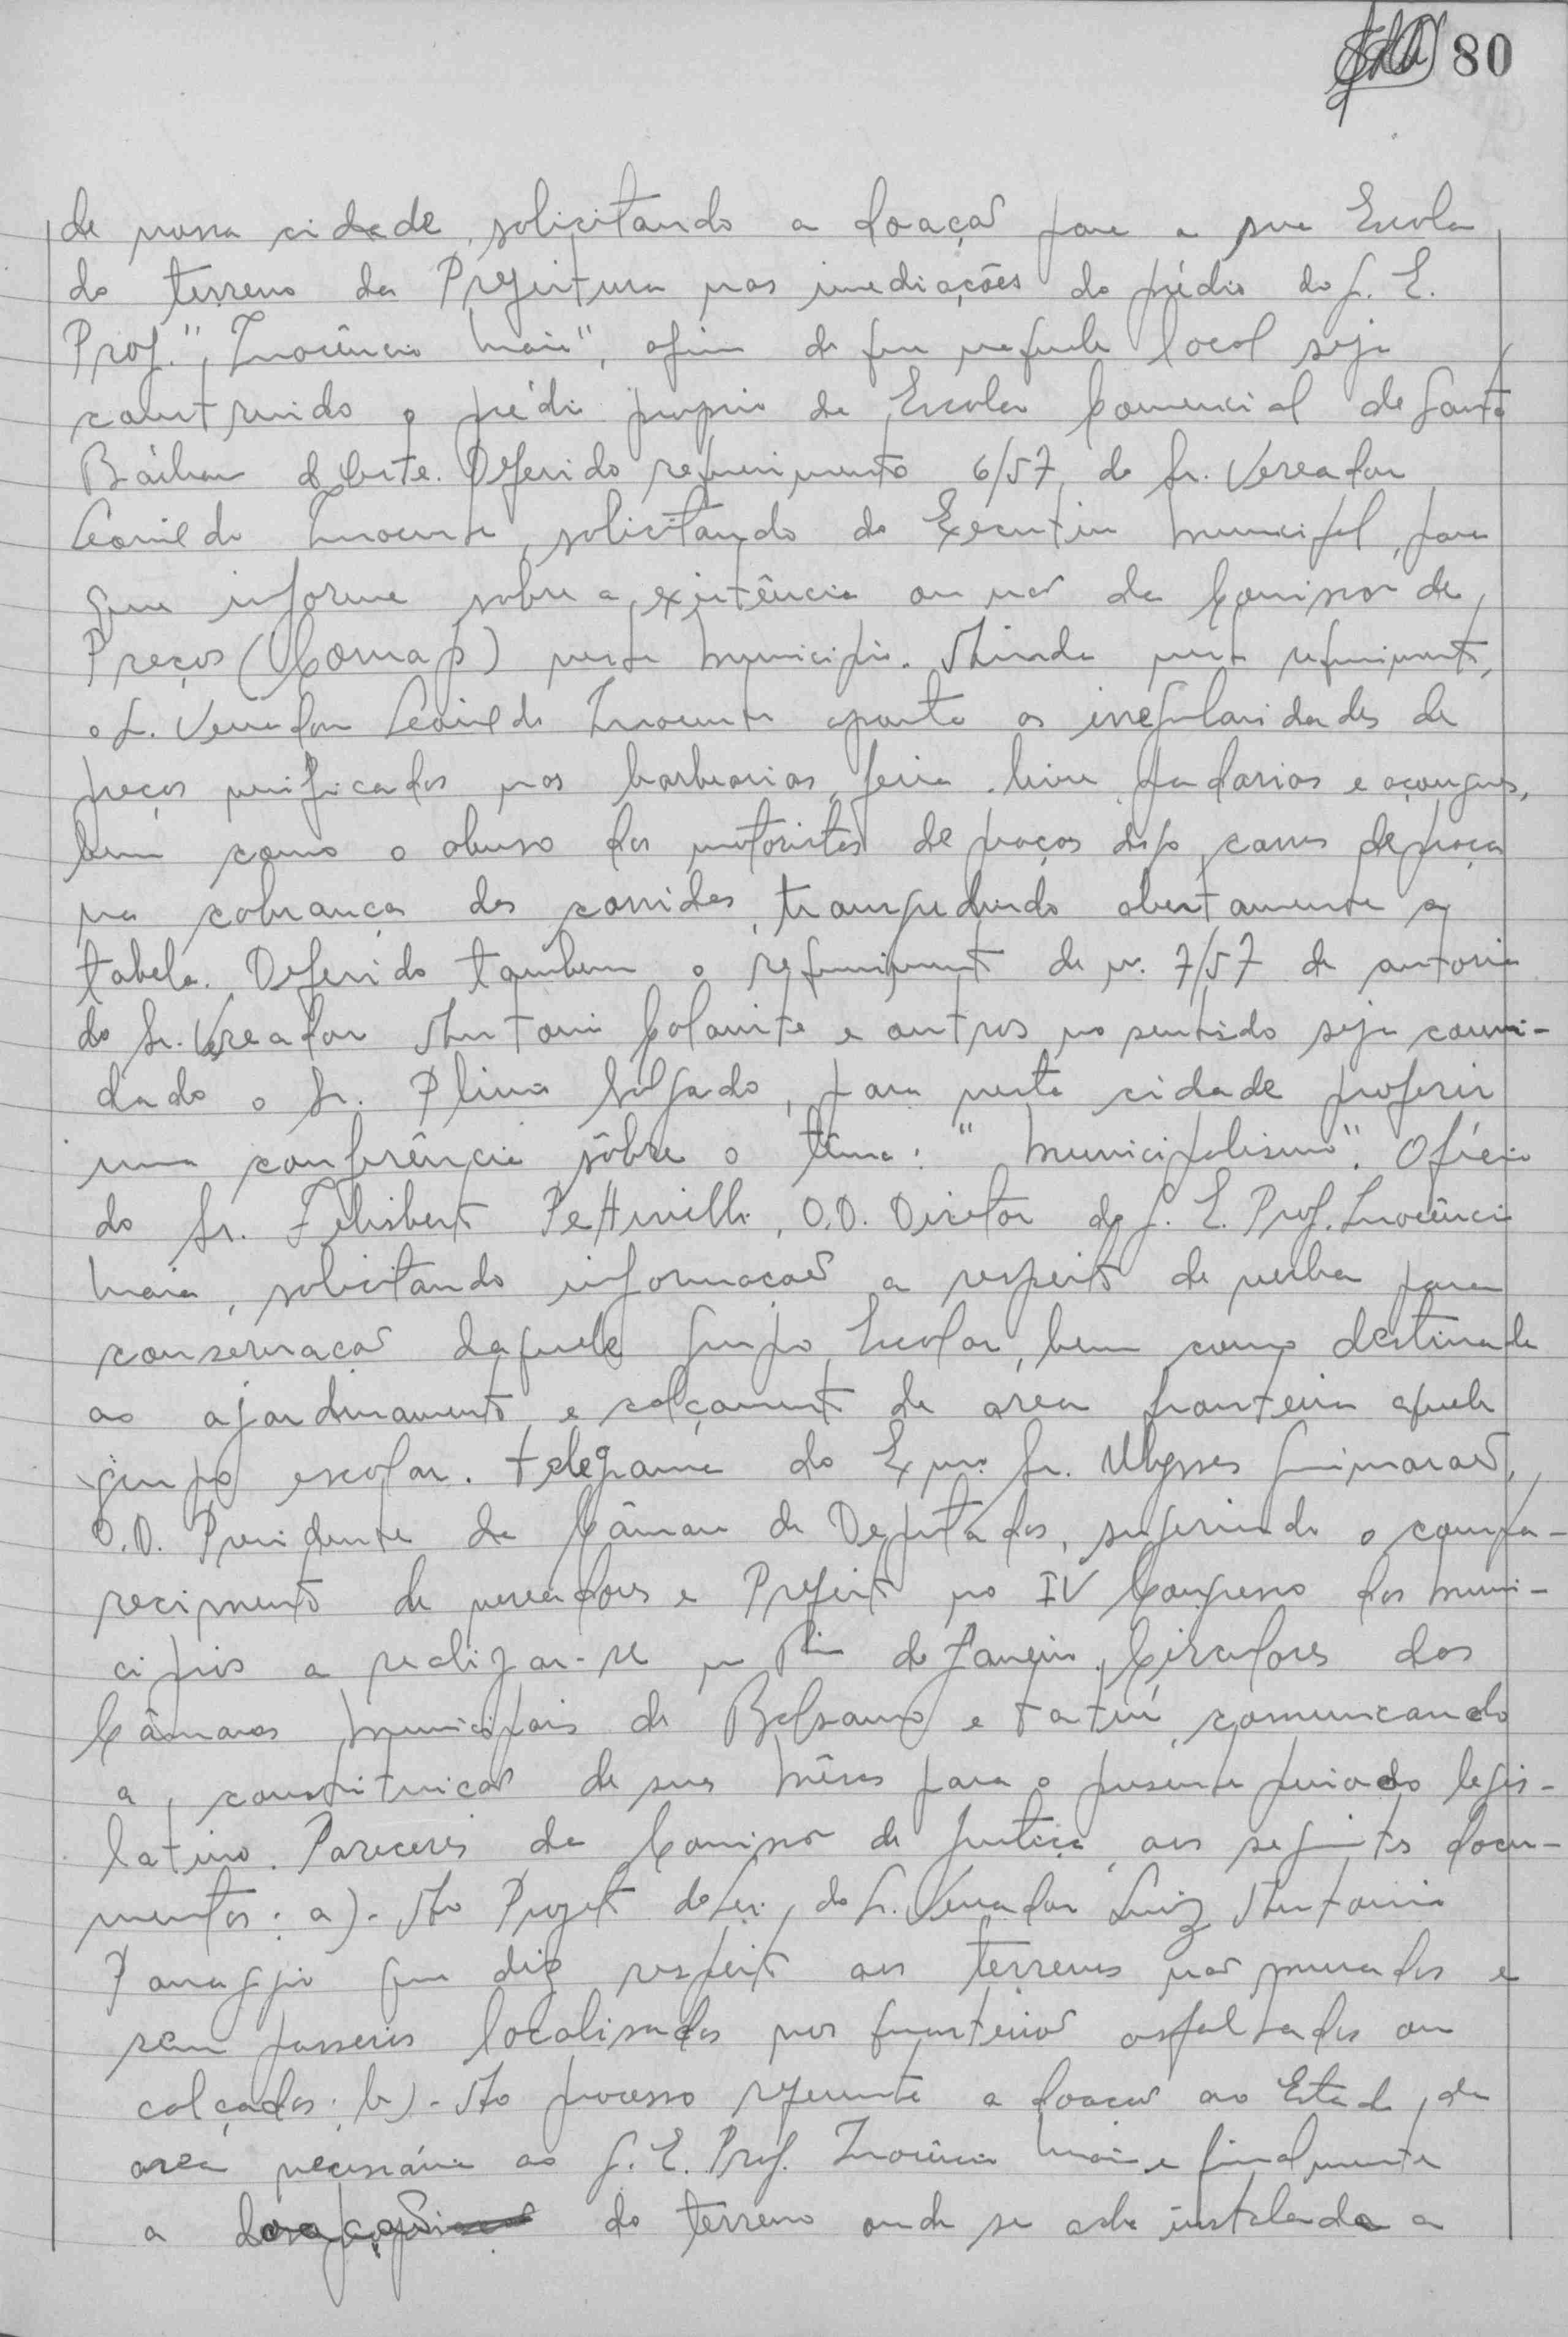 80
de nossa cidade, solicitando a doação para a sua Escola
do terreno da Prefeitura nas imediações do prédio do G. E.
Prof. "Inocêncio Maia", afim de que naquele local seja
construido o prédio proprio da Escola Comercial de Santa
Bárbara d'Oeste. Deferido requerimento 6/57, do Sr. Vereador
Leonildo Inocente, solicitando do Executivo Municipal, para
que informe sobre a existência ou não da Comissão de
Preços (Comap) neste Municipio. Ainda neste requerimento,
o Sr. Vereador Leonildo Inocente aponta as irregularidades de
preços verificados nas barbearias, feira livre, padarias e açougues,
bem como o abuso dos motoristas de praças digo, carros de praça
na cobrança das corridas, transgredindo abertamente a
tabela. Deferido tambem o requerimento de n. 7/57 de autoria
do Sr. Vereador Antonio Colanite e outros no sentido seja convi-
dado o Sr. Plinio Salgado, para nesta cidade proferir
uma conferência sôbre o têma: "Municipalismo". Ofício
do Sr. Felisberto Pettinelli, D.D. Diretor do G. E. Prof. Inocêncio
Maia, solicitando informação a respeito de verba para
conservação daquele Grupo Escolar, bem como destinada
ao ajardinamento e calçamento da area fronteira aquele
grupo escolar. Telegrama do Exmo. Sr. Ulysses Guimarães,
D.D. Presidente da Câmara de Deputados, sugerindo o compa-
recimento de vereadores e Prefeito no IV Congresso dos Muni-
cipios a realizar-se no Rio de Janeiro. Circulares das
Câmaras Municipais de Balsamo e Tatuí, comunicando
a constituição de suas Mêsas para o presente periodo legis-
lativo. Pareceres da Comissão de Justiça aos seguintes docu-
mentos: a)- Ao Projeto de Lei, do Sr. Vereador Luiz Antonio
Panaggio que diz respeito aos terrenos não murados e
sem passeios localisados nos quarteirões asfaltados ou
calçados. b)- Ao processo referente a doação ao Estado, da
area necessária ao G. E. Prof. Inocêncio Maia e finalmente
a doação do terreno onde se acha instalada a